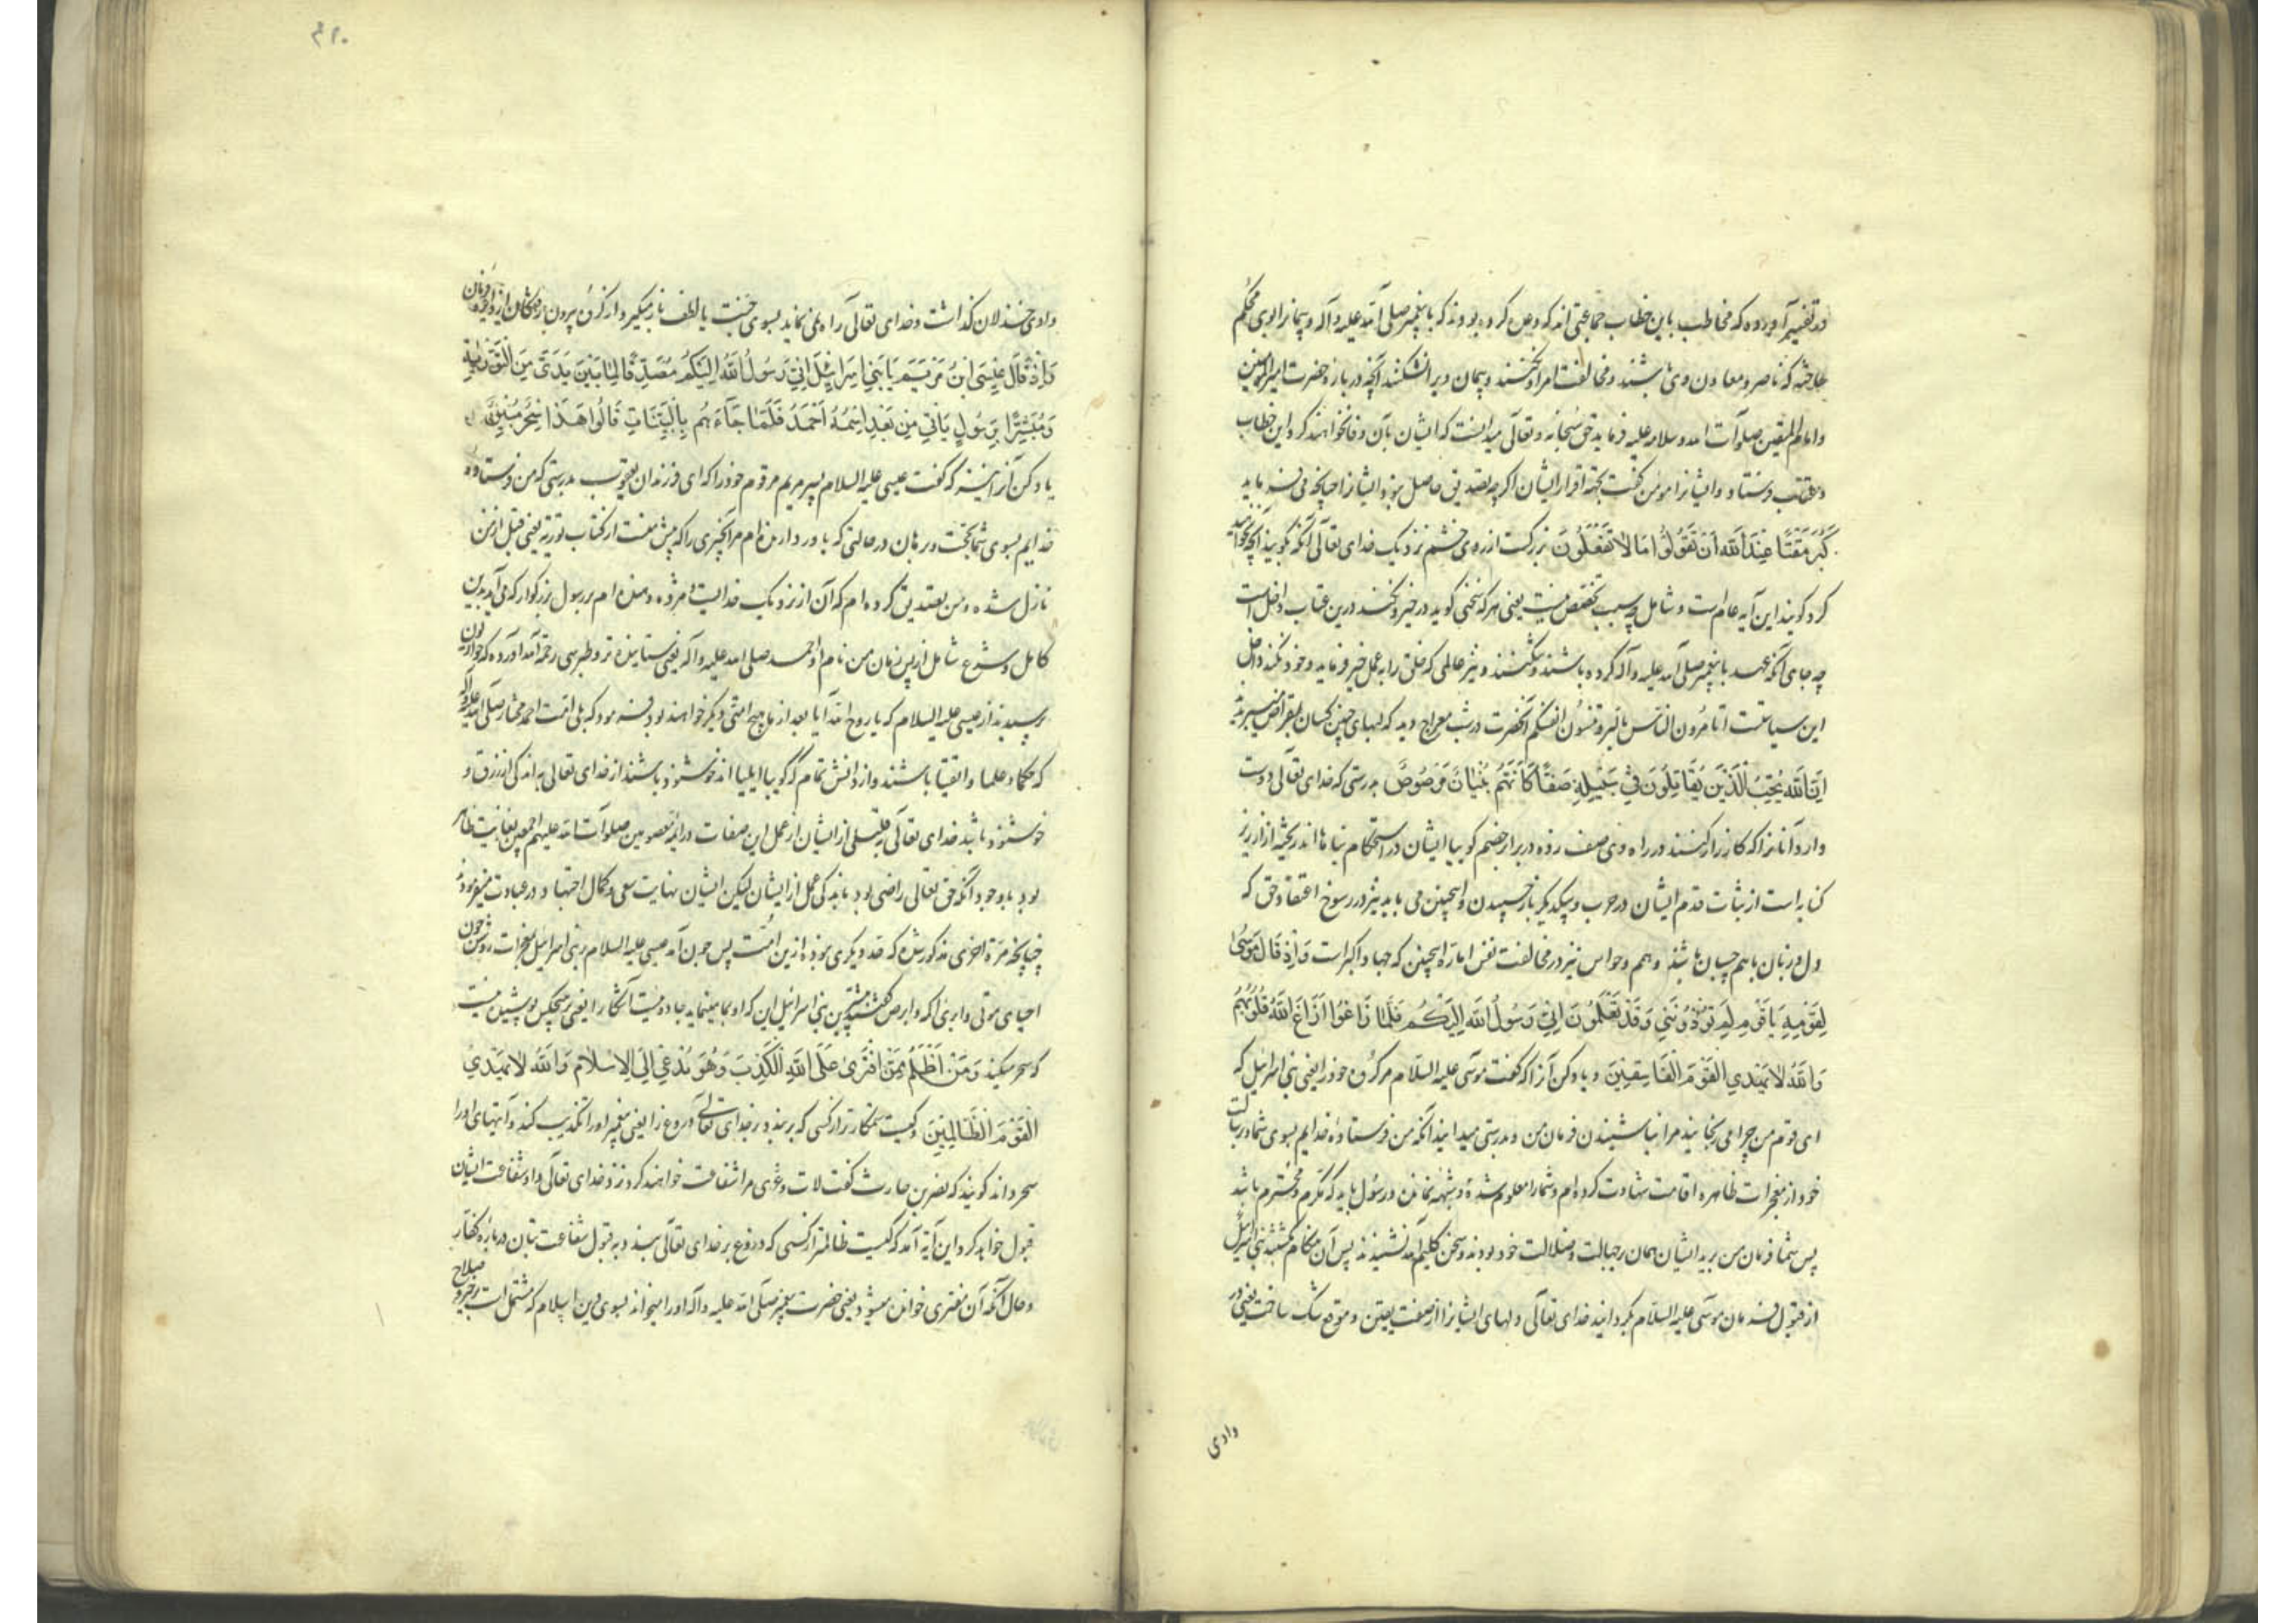 در تفسیر آورده که مخاطب باین خطاب جماعتی اند که وعده کرده بودند که با پیغمبر صلی الله علیه و آله و پیمانرا بوی محکم
ساخته که ناصر و معاون وی باشند و مخالفت امر او نکنند و پیمان ویرا نشکنند آنچه در باره حضرت امیرالمومنین
و امام المتقین صلوات الله و سلامه علیه فرماید حق سبحانه و تعالی میدانست که ایشان بآن وفا نخواهند کرد این خطاب
و عتاب فرستاد و ایشانرا مومن گفت بجهة اقرار ایشان اگرچه تصدیق حاصل نبود ایشانرا چنانچه می فرماید
كَبُرَ مَقْتًا عِنْدَ اللَّهِ أَنْ تَقُولُوا مَا لَا تَفْعَلُونَ بزرگست از روی خشم نزدیک خدای تعالی آنکه گویید آنچه نخواهید
کرد گویند این آیه عام است و شامل چه سبب تخصیص نیست یعنی هر که سخنی گوید در خیر و نکند درین عتاب داخل است
چه جای آنکه عهد با پیغمبر صلی الله علیه و آله کرده باشند و بشکنند و نیز عالمی که خلق را به عمل خیر فرماید و خود نکند داخل
این سیاستست اتامرون الناس بالبر و تنسون انفسکم آنحضرت در شب معراج دید که لبهای چنین کسان بمقراض میبریدند
إِنَّ اللَّهَ يُحِبُّ الَّذِينَ يُقَاتِلُونَ فِي سَبِيلِهِ صَفًّا كَأَنَّهُمْ بُنْيَانٌ مَرْصُوصٌ بدرستی که خدای تعالی دوست
دارد آنانرا که کارزار کنند در راه وی صف زده در برابر خصم گوییا ایشان در استحکام بناها اند ریخته از ارزیز
کنایه است از ثبات قدم ایشان در حرب و بیکدیگر بازچسپیدن و همچنین می باید نیز در رسوخ اعتقاد حق که
دل و زبان باهم چسپان باشند و هم و حواس نیز در مخالفت نفس اماره همچنین که جهاد اکبر است وَإِذْ قَالَ مُوسَى
لِقَوْمِهِ يَا قَوْمِ لِمَ تُؤْذُونَنِي وَقَدْ تَعْلَمُونَ أَنِّي رَسُولُ اللَّهِ إِلَيْكُمْ فَلَمَّا زَاغُوا أَزَاغَ اللَّهُ قُلُوبَهُمْ
وَاللَّهُ لَا يَهْدِي الْقَوْمَ الْفَاسِقِينَ و یاد کن آنرا که گفت موسی علیه السلام مر گروه خود را یعنی بنی اسرائیل که
ای قوم من چرا می رنجانید مرا بناشنیدن فرمان من و بدرستی میدانید آنکه من فرستاده خدایم بسوی شما و رسالت
خود از معجزات ظاهره اقامت شهادت کرده ام و شما را معلوم شده و شبهه نمانده و رسول باید که مکرم و محترم باشد
پس شما فرمان من برید ایشان همان بر جهالت و ضلالت خود بودند و سخن کلیم الله نشنیدند پس آن هنگام که گشتند بنی اسرائیل
از قبول فرمان موسی علیه السلام بگردانید خدای تعالی دلهای ایشانرا از صفت یقین و موقع شک ساخت یعنی در
وادی
٤٩٠
وادی خذلان گذاشت و خدای تعالی راه نمی نماید بسوی جنت یا لطف باز میگیرد از گروه بیرون رفتگان از دایره فرمان
وَإِذْ قَالَ عِيسَى ابْنُ مَرْيَمَ يَا بَنِي إِسْرَائِيلَ إِنِّي رَسُولُ اللَّهِ إِلَيْكُمْ مُصَدِّقًا لِمَا بَيْنَ يَدَيَّ مِنَ التَّوْرَاةِ
وَمُبَشِّرًا بِرَسُولٍ يَأْتِي مِنْ بَعْدِي اسْمُهُ أَحْمَدُ فَلَمَّا جَاءَهُمْ بِالْبَيِّنَاتِ قَالُوا هَذَا سِحْرٌ مُبِينٌ
یاد کن آنرا نیز که گفت عیسی علیه السلام پسر مریم مر قوم خود را که ای فرزندان یعقوب بدرستی که من فرستاده
خدایم بسوی شما بحجت و برهان در حالتی که باور دارنده ام مر آنچیزی را که پیش منست از کتاب تورية یعنی قبل از من
نازل شده و من تصدیق کرده ام که آن از نزدیک خداست و مژده دهنده ام برسول بزرگوار که می آید بدین
کامل و شرع شامل از پس زمان من نام او احمد صلی الله علیه و آله یعنی ستاینده تر و طبرسی رحمه الله آورده که حواریون
پرسیدند از عیسی علیه السلام که یا روح الله آیا بعد از ما هیچ امتی دیگر خواهند بود فرمود که بلی امت احمد مختار صلی الله علیه و آله
که حکما و علما و اتقیا باشند و از دانش تمام که گوییا انبیا اند خوشنود باشند از خدای تعالی به اندکی از رزق و
خوشنود باشد خدای تعالی بقلیلی از ایشان از عمل این صفات در ائمه معصومین صلوات الله علیهم اجمعین بغایت ظاهر
بود با وجود آنکه حق تعالی راضی بود باندکی عمل از ایشان لیکن ایشان نهایت سعی و کمال اجتهاد در عبادت میفرمودند
چنانچه مرة اخری مذکور شد که قد دیگری نبوده ازین امت پس چون آمد عیسی علیه السلام ببنی اسرائیل بمعجزات روشن چون
احیای موتی و ابرای اکمه و ابرص گفتند بنی اسرائیل این که او بما مینماید جادوئیست آشکارا یعنی بر هیچکس پوشیده نیست
که سحر میکند وَمَنْ أَظْلَمُ مِمَّنِ افْتَرَى عَلَى اللَّهِ الْكَذِبَ وَهُوَ يُدْعَى إِلَى الْإِسْلَامِ وَاللَّهُ لَا يَهْدِي
الْقَوْمَ الظَّالِمِينَ و کیست ستمکارتر از کسی که بربندد بر خدای تعالی دروغ را یعنی پیغمبر او را تکذیب کند و آیتهای او را
سحر داند گویند که نضر بن حارث گفت لات و عزی مرا شفاعت خواهند کرد نزد خدای تعالی و او شفاعت ایشان
قبول خواهد کرد این آیه آمد که کیست ظالمتر از کسی که دروغ بر خدای تعالی بندد به قبول شفاعت بتان درباره کفار
و حال آنکه آن مفتری خوانده میشود یعنی حضرت پیغمبر صلی الله علیه و آله او را میخواند بسوی دین اسلام که مشتمل است بر خیر و صلاح